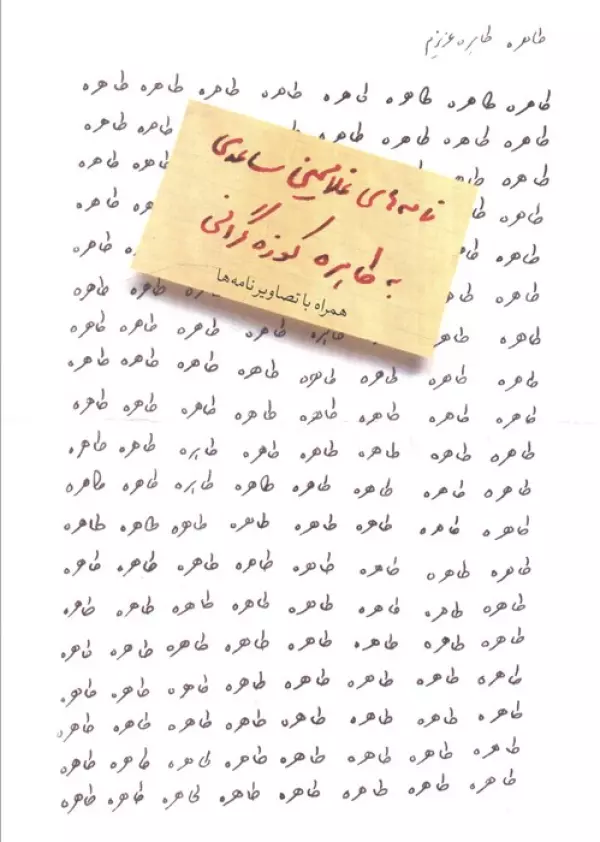 طاهره طاهره عزیزم
طاهره طاهره طاهره طاهره طاهره طاهره طاهره طاهره
طاهره طاهره طاهره طاهره طاهره طاهره
طاهره طاهره طاهره
نامه‌های غلامحسین ساعدی
به طاهره کوزه‌گرانی
همراه با تصاویر نامه‌ها
طاهره طاهره
طاهره طاهره
طاهره طاهره
طاهره طاهره طاهره طاهره طاهره طاهره
طاهره طاهره طاهره طاهره طاهره طاهره طاهره طاهره
طاهره طاهره طاهره طاهره طاهره طاهره طاهره طاهره
طاهره طاهره طاهره طاهره طاهره طاهره طاهره طاهره
طاهره طاهره طاهره طاهره طاهره طاهره طاهره طاهره
طاهره طاهره طاهره طاهره طاهره طاهره طاهره طاهره
طاهره طاهره طاهره طاهره طاهره طاهره طاهره طاهره
طاهره طاهره طاهره طاهره طاهره طاهره طاهره طاهره
طاهره طاهره طاهره طاهره طاهره طاهره طاهره طاهره
طاهره طاهره طاهره طاهره طاهره طاهره طاهره طاهره
طاهره طاهره طاهره طاهره طاهره طاهره طاهره طاهره
طاهره طاهره طاهره طاهره طاهره طاهره طاهره طاهره
طاهره طاهره طاهره طاهره طاهره طاهره طاهره طاهره